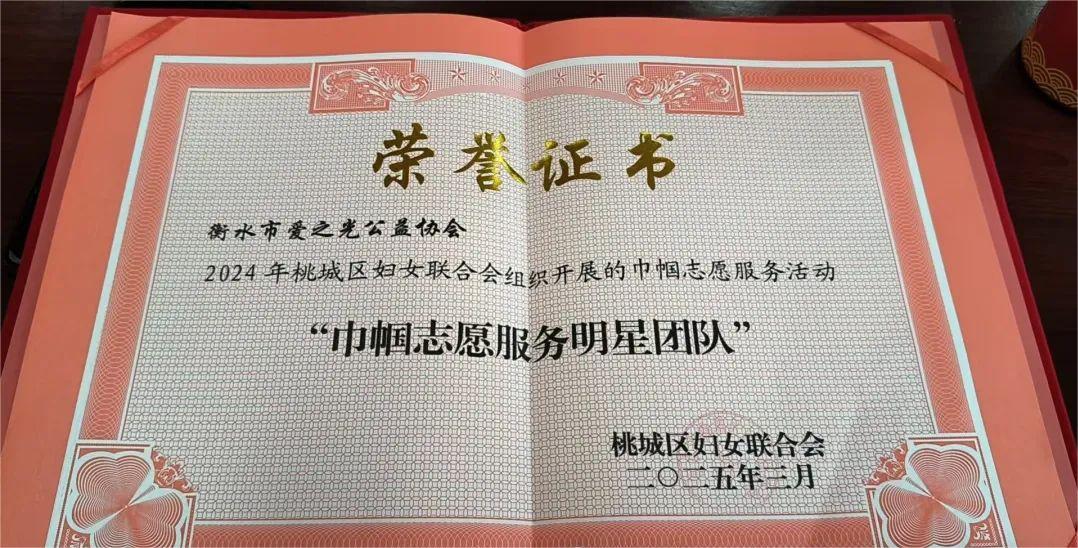 荣誉证书
衡水市爱之光公益协会
2024年桃城区妇女联合会组织开展的巾帼志愿服务活动
“巾帼志愿服务明星团队”
桃城区妇女联合会
二〇二五年三月